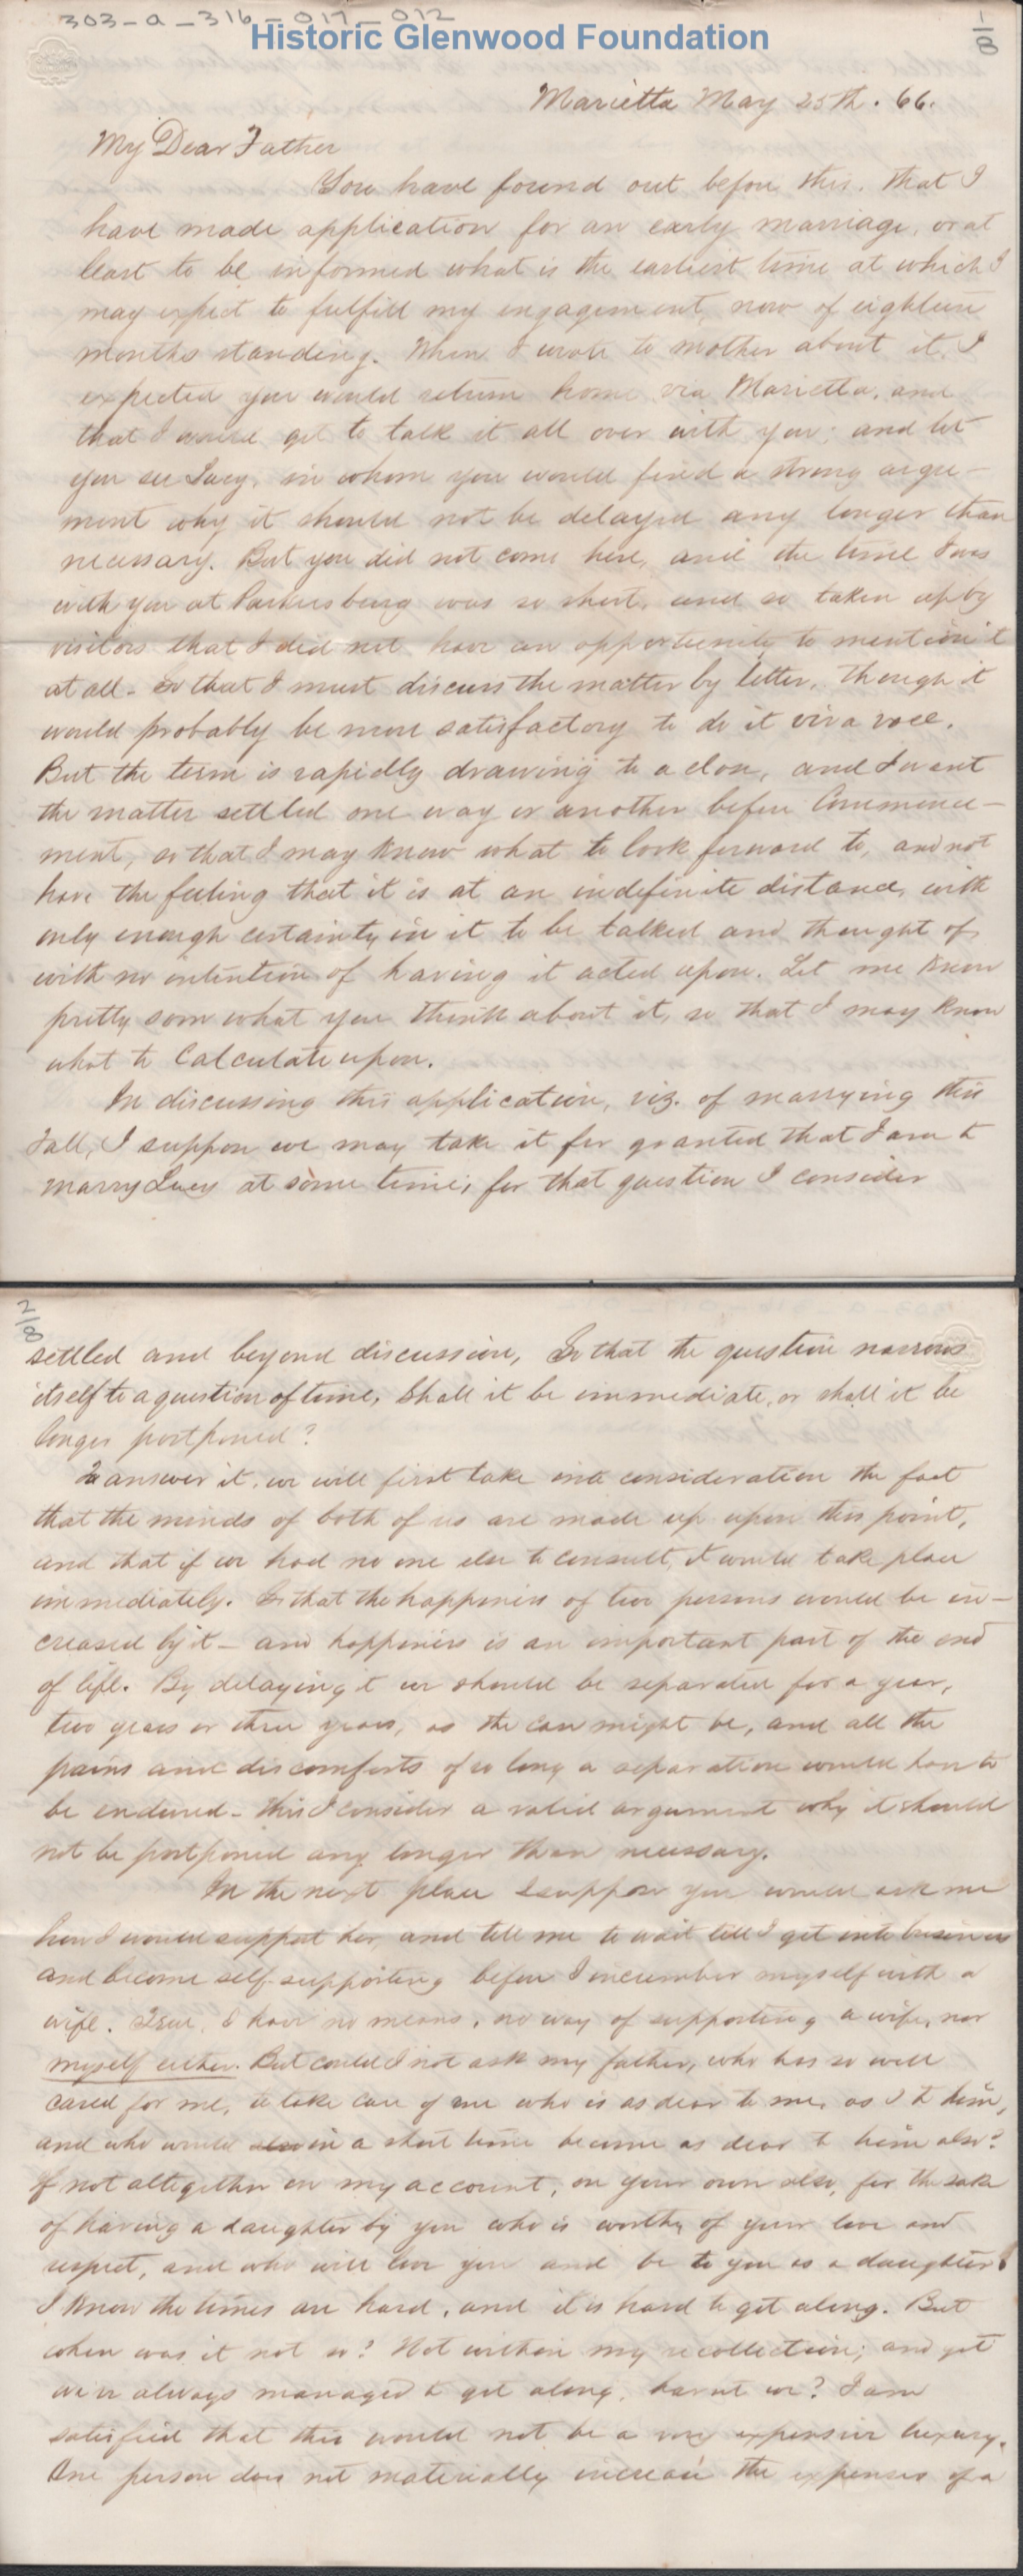 303-a-316-017-012
Historic Glenwood Foundation
1/8
Marietta May 25th. 66.
My Dear Father
You have found out before this, that I
have made application for an early marriage, or at
least to be informed what is the earliest time at which I
may expect to fulfill my engagement, now of eighteen
months standing. When I wrote to mother about it, I
expected you would return home via Marietta, and
that I would get to talk it all over with you; and let
you see Lucy, in whom you would find a strong argu-
ment why it should not be delayed any longer than
necessary. But you did not come here, and the time I was
with you at Parkersburg was so short, and so taken up by
visitors that I did not have an opportunity to mention it
at all. So that I must discuss the matter by letter, though it
would probably be more satisfactory to do it viva voce.
But the term is rapidly drawing to a close, and I want
the matter settled one way or another before Commence-
ment, so that I may know what to look forward to, and not
have the feeling that it is at an indefinite distance, with
only enough certainty in it to be talked and thought of,
with no intention of having it acted upon. Let me know
pretty soon what you think about it, so that I may know
what to calculate upon.
In discussing this application, viz. of marrying this
Fall, I suppose we may take it for granted that I am to
marry Lucy at some time, for that question I consider
2/8
settled and beyond discussion, So that the question narrows
itself to a question of time, Shall it be immediate, or shall it be
longer postponed?
To answer it, we will first take into consideration the fact
that the minds of both of us are made up upon this point,
and that if we had no one else to consult, it would take place
immediately. So that the happiness of two persons would be in-
creased by it - and happiness is an important part of the end
of life. By delaying it we should be separated for a year,
two years or three years, as the case might be, and all the
pains and discomforts of so long a separation would have to
be endured - this I consider a valid argument why it should
not be postponed any longer than necessary.
In the next place I suppose you would ask me
how I would support her, and tell me to wait till I get into business
and become self-supporting before I incumber myself with a
wife. True, I have no means, no way of supporting a wife, nor
myself either. But could I not ask my father, who has so well
cared for me, to take care of one who is as dear to me, as I to him,
and who would in a short time become as dear to him also?
If not altogether on my account, on your own also, for the sake
of having a daughter by you who is worthy of your love and
respect, and who will love you and be to you as a daughter!
I know the times are hard, and it is hard to get along. But
when was it not so? Not within my recollection; and yet
we've always managed to get along, havnt we? I am
satisfied that this would not be a very expensive luxury.
One person does not materially increase the expenses of a